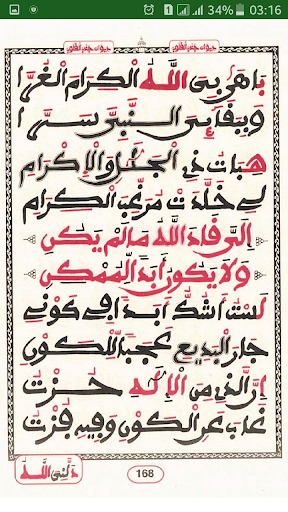 34% 03:16
ديوان جذب القلوب ديوان جذب القلوب
باهى بي الله الكرام الغرا
النبي سرا
هبات ذي الجلال والإكرام
لي خلدت مرغب الكرام
إلي قاد الله ما لم يكن
ولا يكون أبدا لممكن
لست أشك أبدا في كوني
جار البديع عجبا للكون
إن الذي من الإله حزت
غاب عن الكون وفيه فزت
168
دلني الله